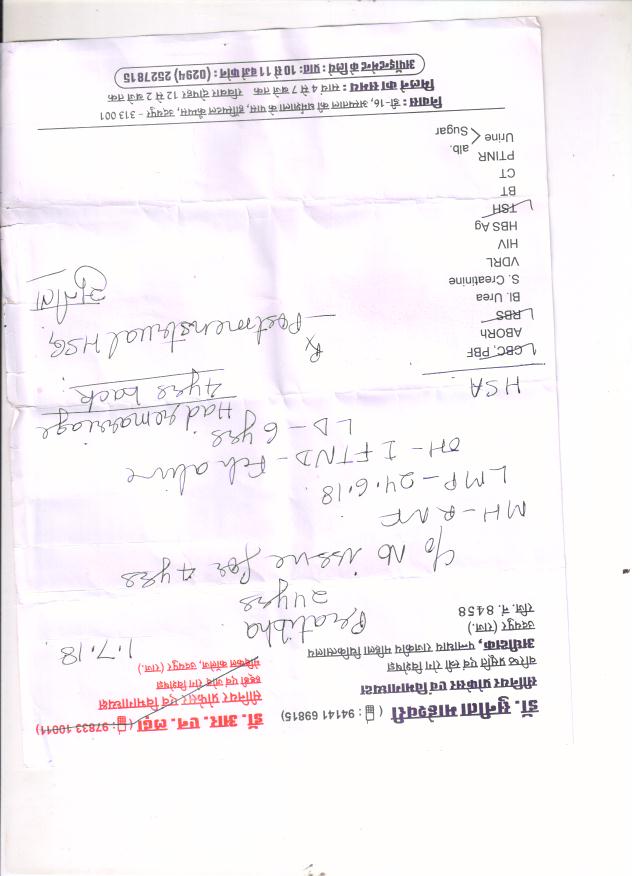 डॉ. सुनीता माहेश्वरी (📱: 94141 69815)
सीनियर प्रोफेसर एवं विभागाध्यक्ष
वरिष्ठ प्रसूति एवं स्त्री रोग विशेषज्ञ
अधीक्षक, पन्नाधाय राजकीय महिला चिकित्सालय
उदयपुर (राज.)
रजि. नं. 8458
डॉ. आर. एन. लढ्ढा (📱: 97833 10011)
सीनियर प्रोफेसर एवं विभागाध्यक्ष
हड्डी एवं जोड़ रोग विशेषज्ञ
मेडिकल कॉलेज, उदयपुर (राज.)
1.7.18
Pratibha
24yrs
c/o No issue for 4yrs
MH - RNF
LMP - 24.6.18
OH - I FTND - Fch alive
LD - 6yrs
Had remarriage
4yrs back
HSA
CBC, PBF
ABORh
RBS
Bl. Urea
S. Creatinine
VDRL
HIV
HBS Ag
TSH
BT
CT
PTINR
Urine < alb.
Sugar
Rx
- Postmenstrual HSG
निवास : डी-16, अस्पताल की धर्मशाला के पास, हॉस्पिटल कैम्पस, उदयपुर - 313 001
मिलने का समय : सायं 4 से 7 बजे तक रविवार दोपहर 12 से 2 बजे तक
अपॉइन्टमेन्ट के लिये : प्रातः 10 से 11 बजे फोन : (0294) 2527815